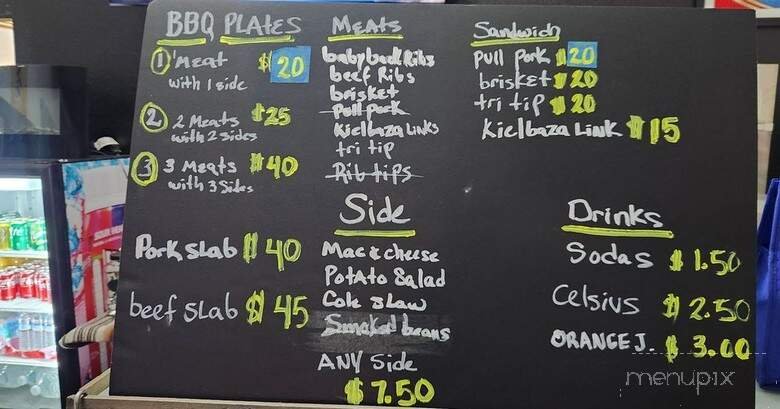 BBQ PLATES
1 Meat $20
with 1 side
2 2 Meats $25
with 2 sides
3 3 Meats $40
with 3 Sides
Pork slab $40
beef slab $45
Meats
babyback Ribs
beef Ribs
brisket
Pull Pork
Kielbaza Links
tri tip
Rib tips
Side
Mac & cheese
Potato Salad
Cole Slaw
Smoked beans
ANY Side
$7.50
Sandwich
Pull Pork $20
brisket $20
tri tip $20
Kielbaza Link $15
Drinks
Sodas $1.50
Celsius $2.50
ORANGE J. $3.00
menupix